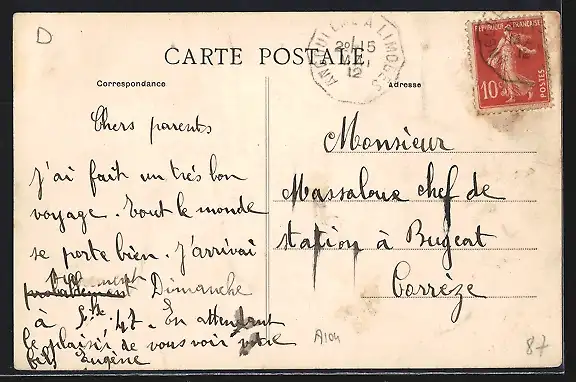 D
CARTE POSTALE
ANGOULEME A LIMOGES
20 15
12
REPUBLIQUE FRANÇAISE
10c
POSTES
Correspondance
Adresse
Chers parents
J'ai fait un très bon
voyage. Tout le monde
se porte bien. J'arrivai
probablement Dimanche
à 5h 47. En attendant
le plaisir de vous voir votre
fils Eugène
Monsieur
Massaloux chef de
station à Bugeat
Corrèze
A104
87